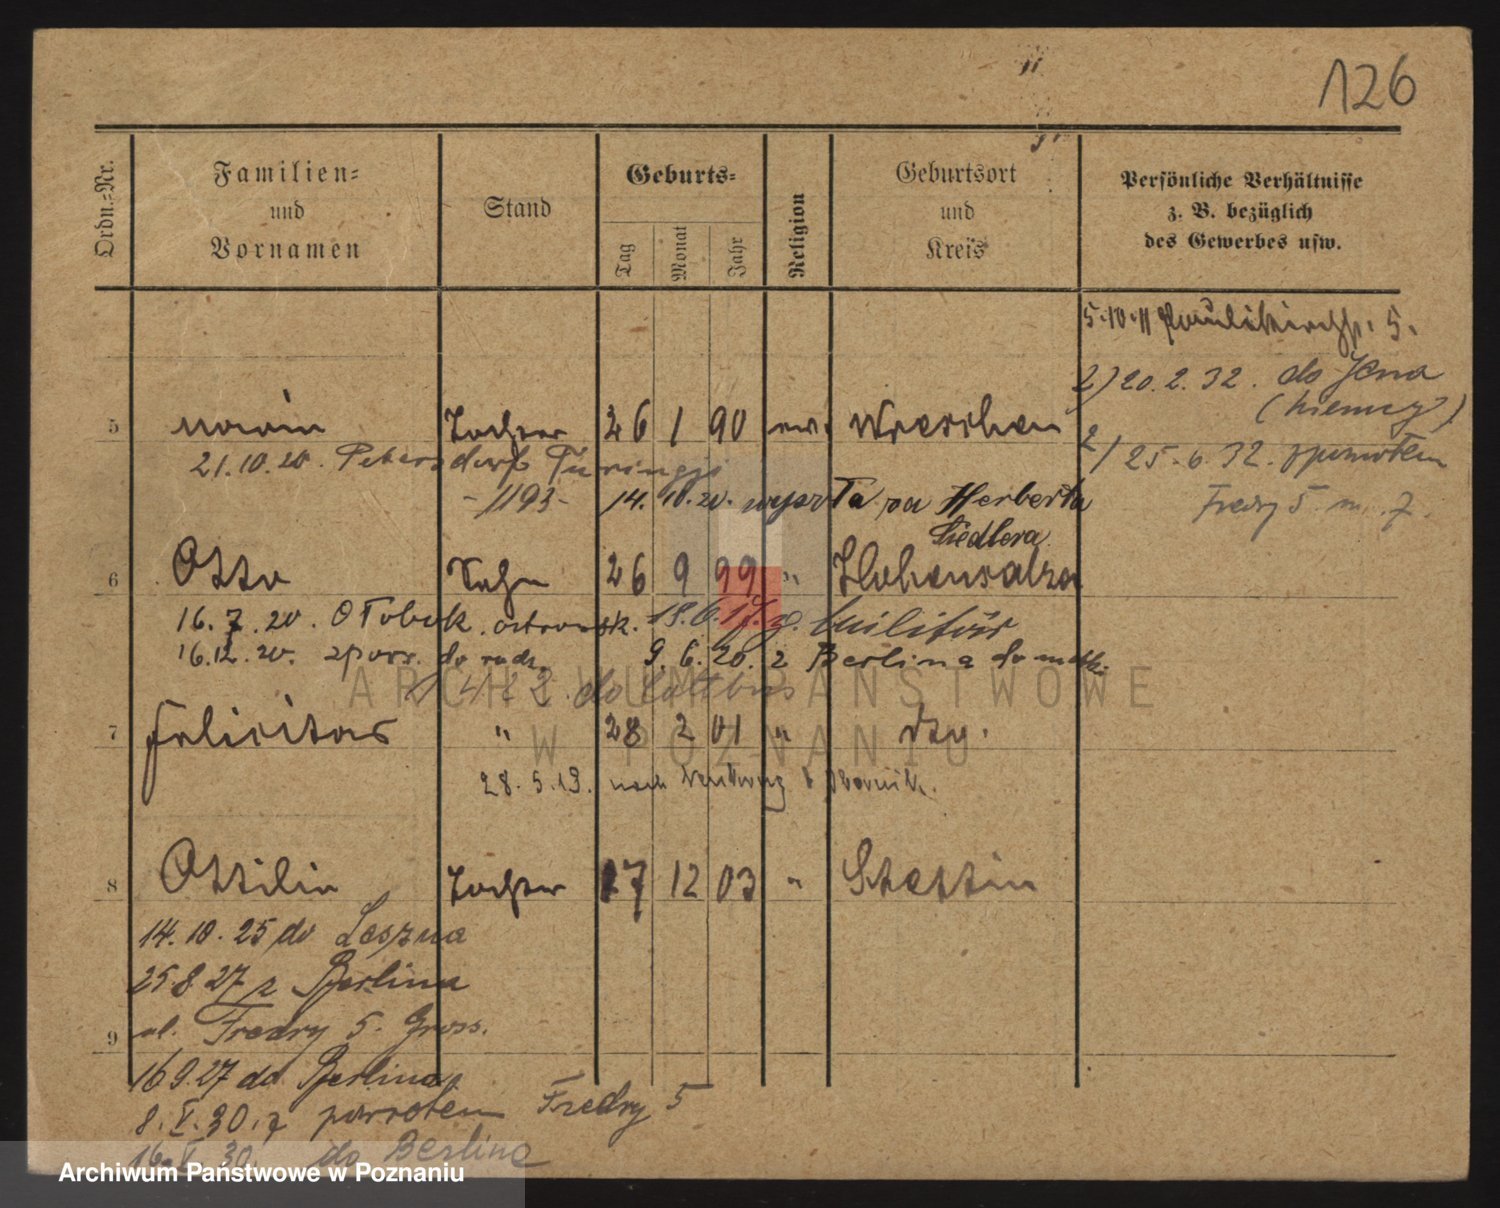 126
Ordn.=Nr.
Familien=
und
Vornamen
Stand
Geburts=
Tag
Monat
Jahr
Religion
Geburtsort
und
Kreis
Persönliche Verhältnisse
z. B. bezüglich
des Gewerbes usw.
5.10.11 Paulikirchstr. 5.
2) 20.2.32. do Jena
(Niemcy)
2) 25.6.32. z powrotem
Fredry 5 m. 7.
5 Maria Tochter 26 1 90 ev. Wreschen
21.10.20. Petersdorf Turingji
-1193- 14.10.20. za Herberta
Siedlera
6 Otto Sohn 26 9 99 " Hohensalza
16.7.20. Otobok. ostrowsk. 18.6.17 z. Militär
16.12.20. z pow. do rodz. 9.6.20. z Berlina do matk.
do Cottbus
7 Felicitas " 28 2 01 " dto.
28.5.13. nach
8 Ottilie Tochter 17 12 03 " Stettin
14.10.25 do Leszna
25.8.27 z Berlina
ul. Fredry 5. Gross.
9
16.9.27 do Berlina
8.V.30. z powrotem Fredry 5
16.V.30. do Berlina
ARCHIWUM PAŃSTWOWE
W POZNANIU
Archiwum Państwowe w Poznaniu